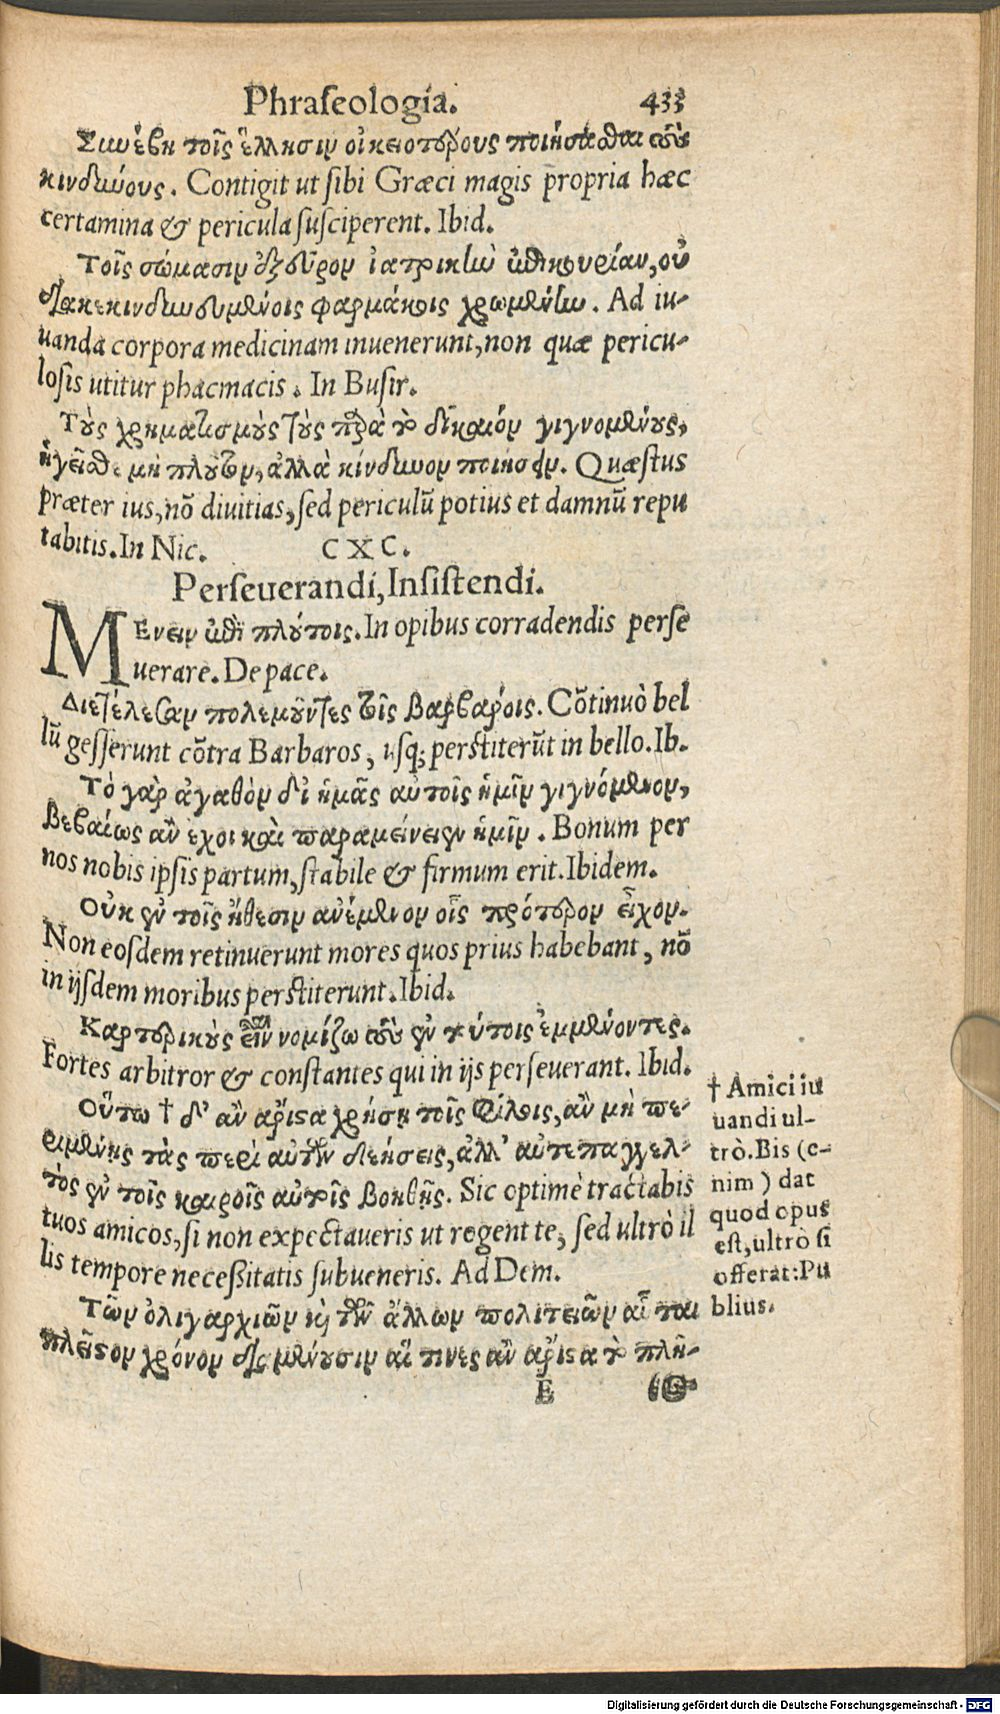 Phraſeologia. 433
Συνέβη τοῖς ἕλλησιν οἰκειοτέρους ποιήσαθαι τοὺς
κινδύνους. Contigit ut ſibi Græci magis propria hæc
certamina & pericula ſuſciperent. Ibid.
Τοῖς σώμασιν ἐξεῦρον ἰατρικὴν ἐπικουρίαν, οὐ
διακεκινδυνευμένοις φαρμάκοις χρωμένην. Ad iu-
uanda corpora medicinam inuenerunt, non quæ pericu-
loſis utitur phacmacis. In Buſir.
Τοὺς χρηματισμοὺς τοὺς παρὰ τὸ δίκαιόν γιγνομένους,
ἡγεῖσθε μὴ πλοῦτον, ἀλλὰ κίνδυνον ποιήσειν. Quæſtus
præter ius, nō diuitias, ſed periculũ potius et damnũ repu
tabitis. In Nic. CXC.
Perſeuerandi, Inſiſtendi.
MΕνειν ἐπὶ πλούτοις. In opibus corradendis perſe
uerare. De pace.
Διετέλεσαν πολεμοῦντες τοῖς βαρβάροις. Cōtinuò bel
lũ geſſerunt cōtra Barbaros, uſq; perſtiterũt in bello. Ib.
Τὸ γὰρ ἀγαθὸν δι' ἡμᾶς αὐτοῖς ἡμῖν γιγνόμενον,
βεβαίως ἂν ἔχοι καὶ παραμείνειεν ἡμῖν. Bonum per
nos nobis ipſis partum, ſtabile & firmum erit. Ibidem.
Οὐκ ἐν τοῖς ἤθεσιν ἀνέμενον οἷς πρότερον εἶχον.
Non eoſdem retinuerunt mores quos prius habebant, nō
in ijſdem moribus perſtiterunt. Ibid.
Καρτερικοὺς νομίζω τοὺς ἐν τούτοις ἐμμένοντες.
Fortes arbitror & conſtantes qui in ijs perſeuerant. Ibid.
Οὕτω † δ' ἂν ἄριστα χρήσῃ τοῖς φίλοις, ἂν μὴ πε-
ριμένῃς τὰς περὶ αὐτῶν δεήσεις, ἀλλ' αὐτεπαγγελ-
τὸς ἐν τοῖς καιροῖς αὐτοῖς βοηθῇς. Sic optimè tractabis
tuos amicos, ſi non expectaueris ut rogent te, ſed ultrò il
lis tempore neceßitatis ſubueneris. Ad Dem.
Τῶν ὀλιγαρχιῶν καὶ τῶν ἄλλων πολιτειῶν αὗται
πλεῖστον χρόνον διαμένουσιν αἵ τινες ἂν ἄριστα τὸ πλῆ-
E θος
† Amici iu
uandi ul-
trò. Bis (e-
nim) dat
quod opus
eſt, ultrò ſi
offerat: Pu
blius.
Digitalisierung gefördert durch die Deutsche Forschungsgemeinschaft - DFG